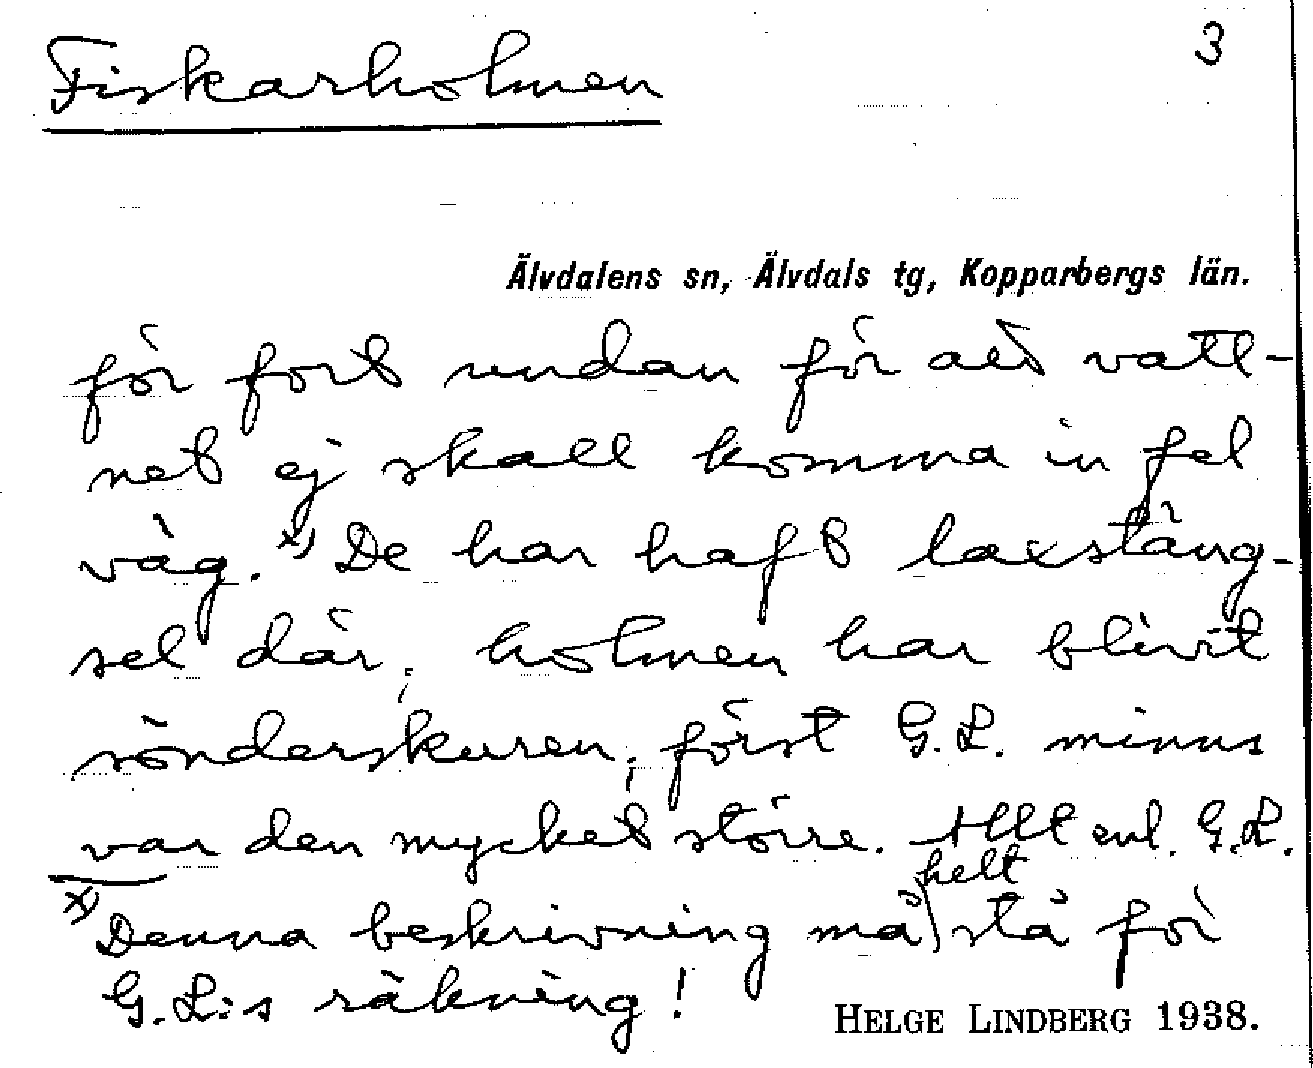 Fiskarholmen
3
Älvdalens sn, Älvdals tg, Kopparbergs län.
för fort undan för att vatt-
net ej skall komma in fel
väg. x) De har haft laxstäng-
sel där; holmen har blivit
sönderskuren; först G.L. minns
var den mycket större. Allt enl. G.L.
helt
x) Denna beskrivning må stå för
G.L:s räkning!
HELGE LINDBERG 1938.